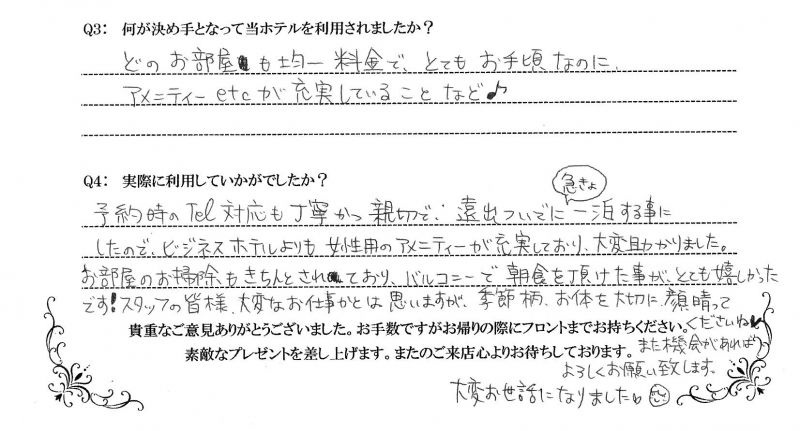 Q3: 何が決め手となって当ホテルを利用されましたか?
どのお部屋も均一料金で、とてもお手頃なのに、
アメニティーetcが充実していることなど♪
Q4: 実際に利用していかがでしたか?
急きょ
予約時のTel対応も丁寧かつ親切で、遠出ついでに一泊する事に
したので、ビジネスホテルよりも女性用のアメニティーが充実しており、大変助かりました。
お部屋のお掃除もきちんとされており、バルコニーで朝食を頂けた事が、とても嬉しかった
です!スタッフの皆様、大変なお仕事かとは思いますが、季節柄、お体を大切に、顔晴って
くださいね♥
貴重なご意見ありがとうございました。お手数ですがお帰りの際にフロントまでお持ちください。
また機会があれば
素敵なプレゼントを差し上げます。またのご来店心よりお待ちしております。
よろしくお願い致します。
大変お世話になりました